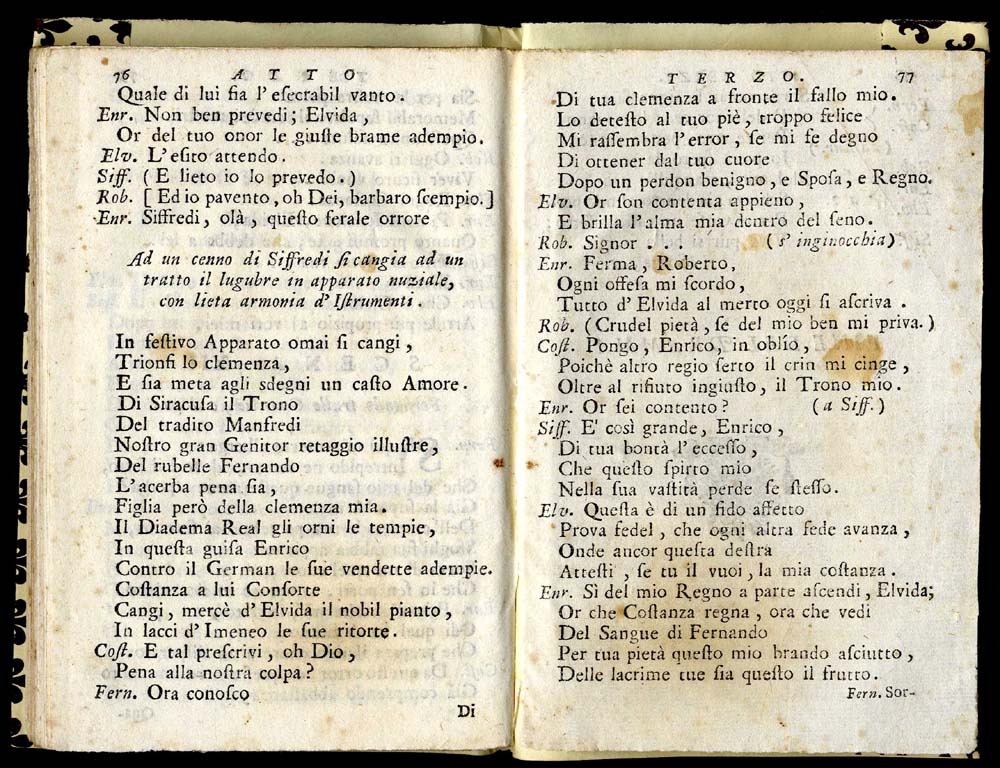 76 ATTO
Quale di lui ſia l' eſecrabil vanto.
Enr. Non ben prevedi; Elvida,
Or del tuo onor le giuſte brame adempio.
Elv. L' eſito attendo.
Siff. (E lieto io lo prevedo.)
Rob. [Ed io pavento, oh Dei, barbaro ſcempio.]
Enr. Siffredi, olà, queſto ferale orrore
Ad un cenno di Siffredi ſi cangia ad un
tratto il lugubre in apparato nuziale,
con lieta armonia d' Iſtrumenti.
In feſtivo Apparato omai ſi cangi,
Trionfi lo clemenza,
E ſia meta agli sdegni un caſto Amore.
Di Siracuſa il Trono
Del tradito Manfredi
Noſtro gran Genitor retaggio illuſtre,
Del rubelle Fernando
L' acerba pena ſia,
Figlia però della clemenza mia.
Il Diadema Real gli orni le tempie,
In queſta guiſa Enrico
Contro il German le ſue vendette adempie.
Coſtanza a lui Conſorte
Cangi, mercè d' Elvida il nobil pianto,
In lacci d' Imeneo le ſue ritorte.
Coſt. E tal preſcrivi, oh Dio,
Pena alla noſtra colpa?
Fern. Ora conoſco
Di
TERZO. 77
Di tua clemenza a fronte il fallo mio.
Lo deteſto al tuo piè, troppo felice
Mi raſſembra l' error, ſe mi fe degno
Di ottener dal tuo cuore
Dopo un perdon benigno, e Spoſa, e Regno.
Elv. Or ſon contenta appieno,
E brilla l' alma mia dentro del ſeno.
Rob. Signor - (s' inginocchia)
Enr. Ferma, Roberto,
Ogni offeſa mi ſcordo,
Tutto d' Elvida al merto oggi ſi aſcriva.
Rob. (Crudel pietà, ſe del mio ben mi priva.)
Coſt. Pongo, Enrico, in oblío,
Poichè altro regio ſerto il crin mi cinge,
Oltre al rifiuto ingiuſto, il Trono mio.
Enr. Or ſei contento? (a Siff.)
Siff. E' così grande, Enrico,
Di tua bontà l' ecceſſo,
Che queſto ſpirto mio
Nella ſua vaſtità perde ſe ſteſſo.
Elv. Queſta è di un fido affetto
Prova fedel, che ogni altra fede avanza,
Onde ancor queſta deſtra
Atteſti, ſe tu il vuoi, la mia coſtanza.
Enr. Sì del mio Regno a parte aſcendi, Elvida;
Or che Coſtanza regna, ora che vedi
Del Sangue di Fernando
Per tua pietà queſto mio brando aſciutto,
Delle lacrime tue ſia queſto il frutto.
Fern. Sor-